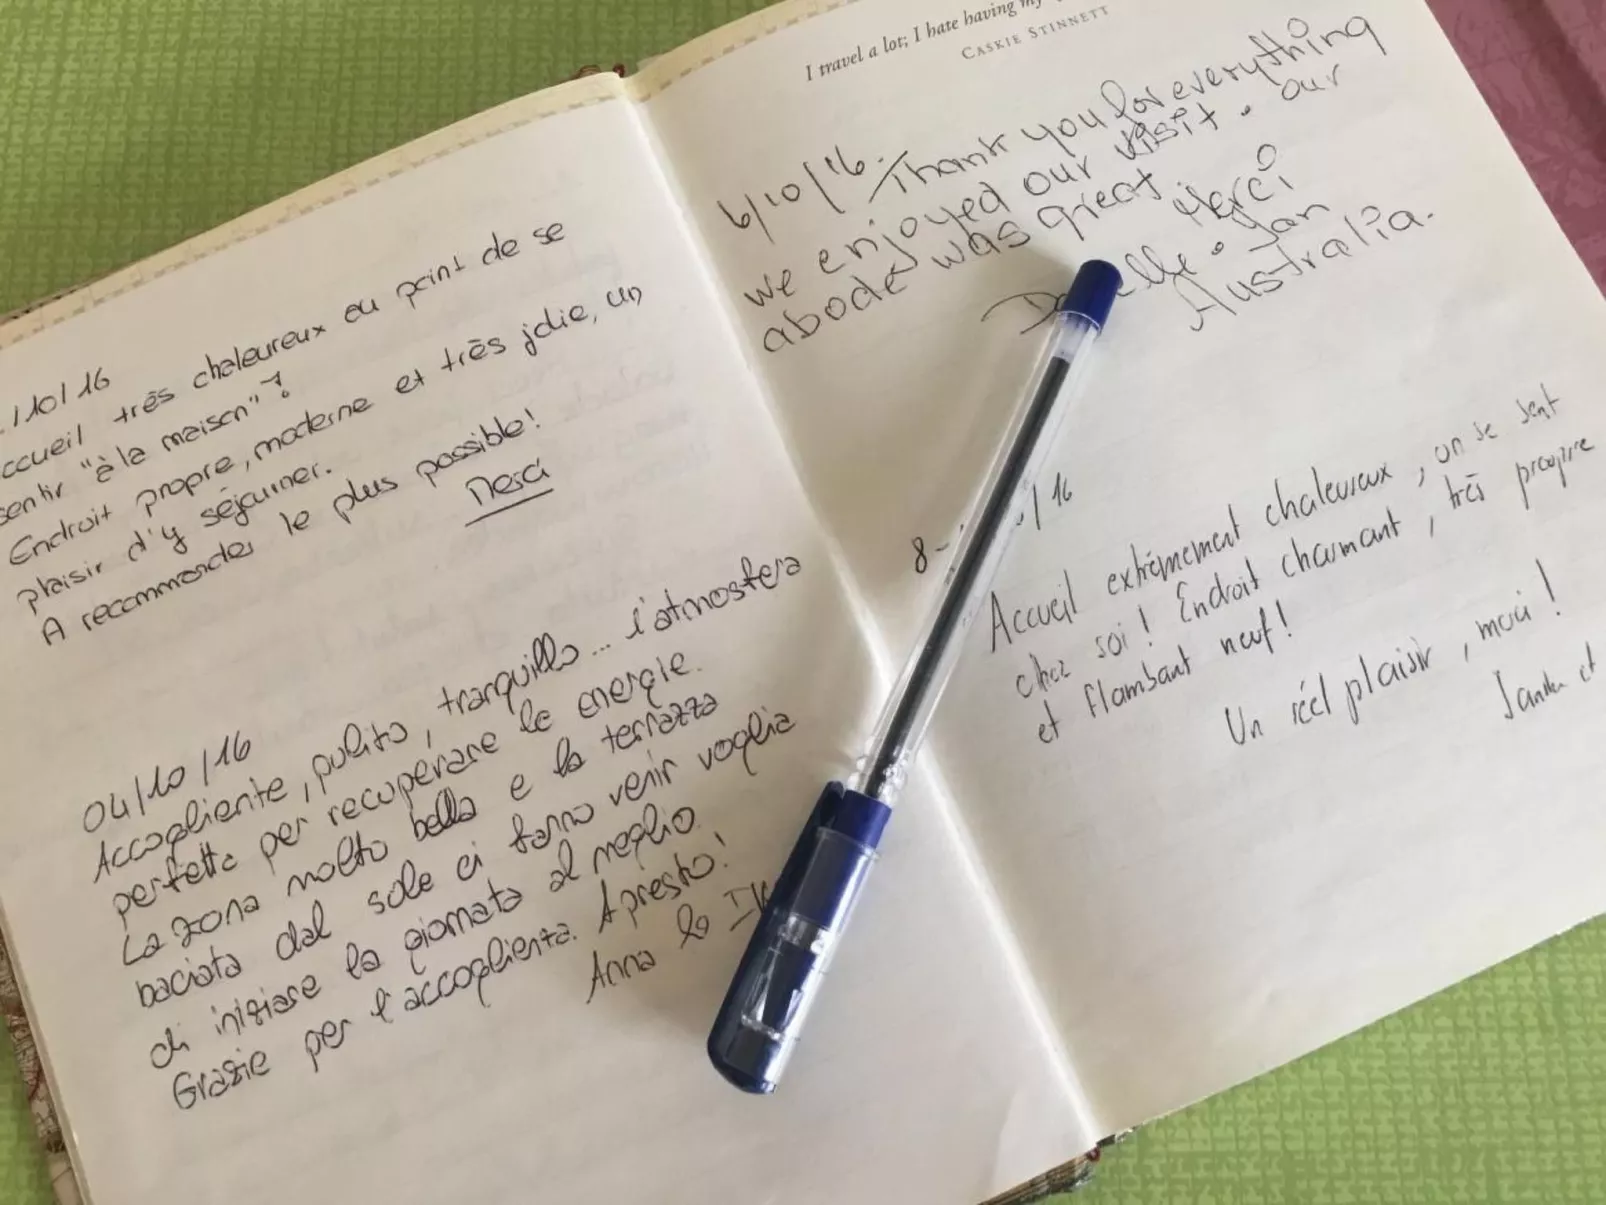 /10/16
ccueil très chaleureux au point de se
sentir "à la maison"!
Endroit propre, moderne et très jolie, un
plaisir d'y séjourner.
A recommander le plus possible!
Merci
04/10/16
Accogliente, pulito, tranquillo... l'atmosfera
perfetta per recuperare le energie.
La zona molto bella e la terrazza
baciata dal sole ci fanno venir voglia
di iniziare la giornata al meglio.
Grazie per l'accoglienza. A presto!
Anna
I travel a lot; I hate having my
CASKIE STINNETT
6/10/16. Thank you for everything
we enjoyed our visit. our
abode was great. Merci
Jan
Australia.
8- /16
Accueil extrêmement chaleureux, on se sent
chez soi! Endroit charmant, très propre
et flambant neuf!
Un réel plaisir, merci!
et